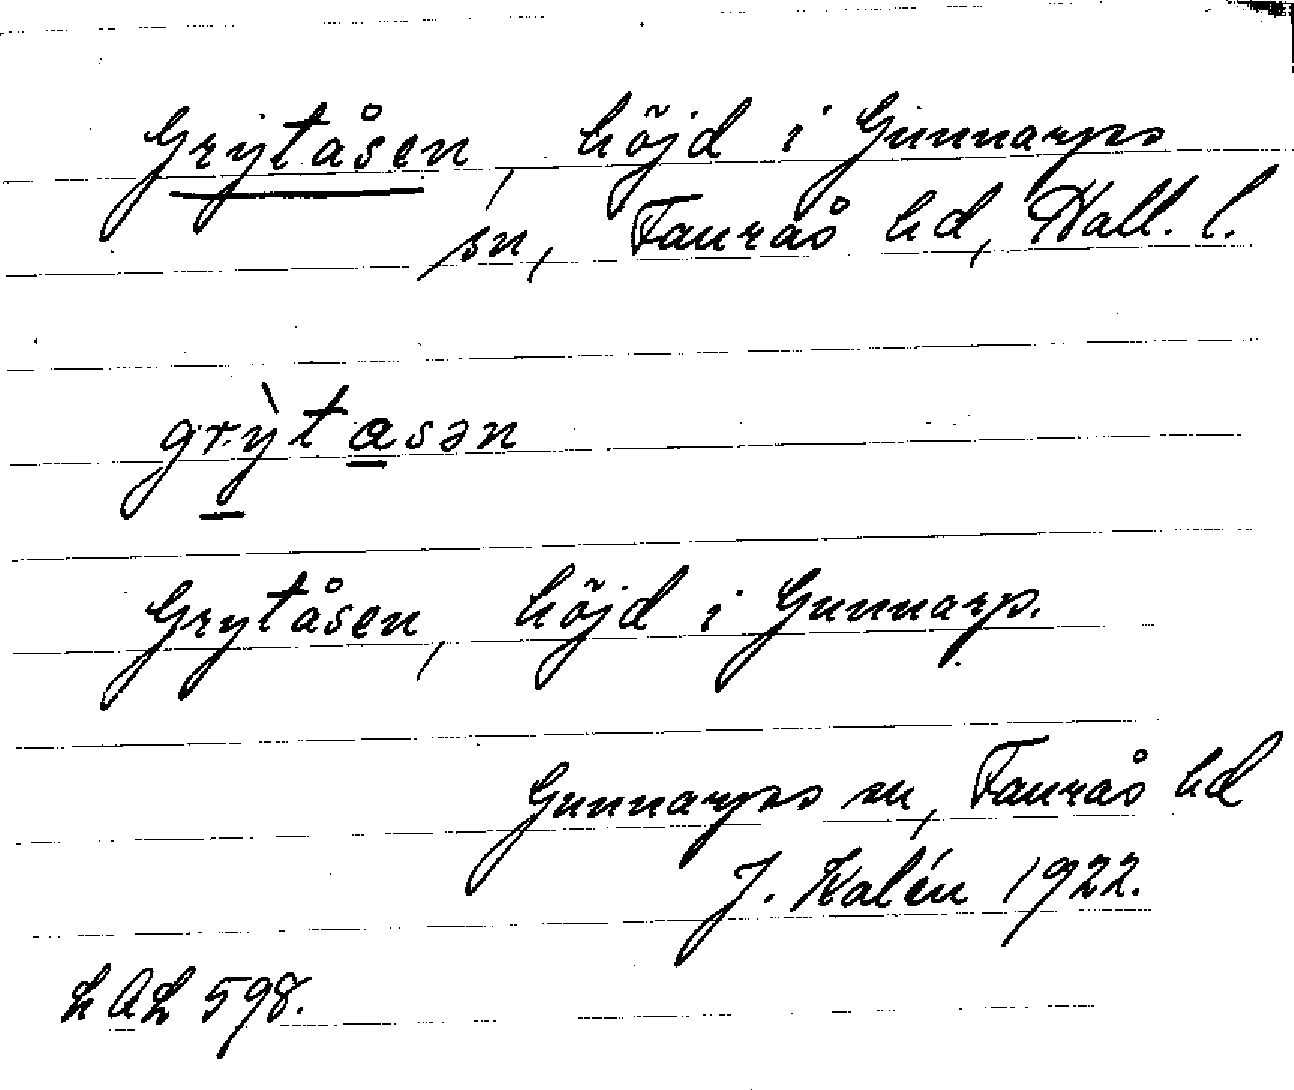 Grytåsen, höjd i Gunnarps
sn, Faurås hd, Hall. l.
grỳtasən
Grytåsen, höjd i Gunnarp.
Gunnarps sn, Faurås hd
J. Kalén 1922.
LAL 598.